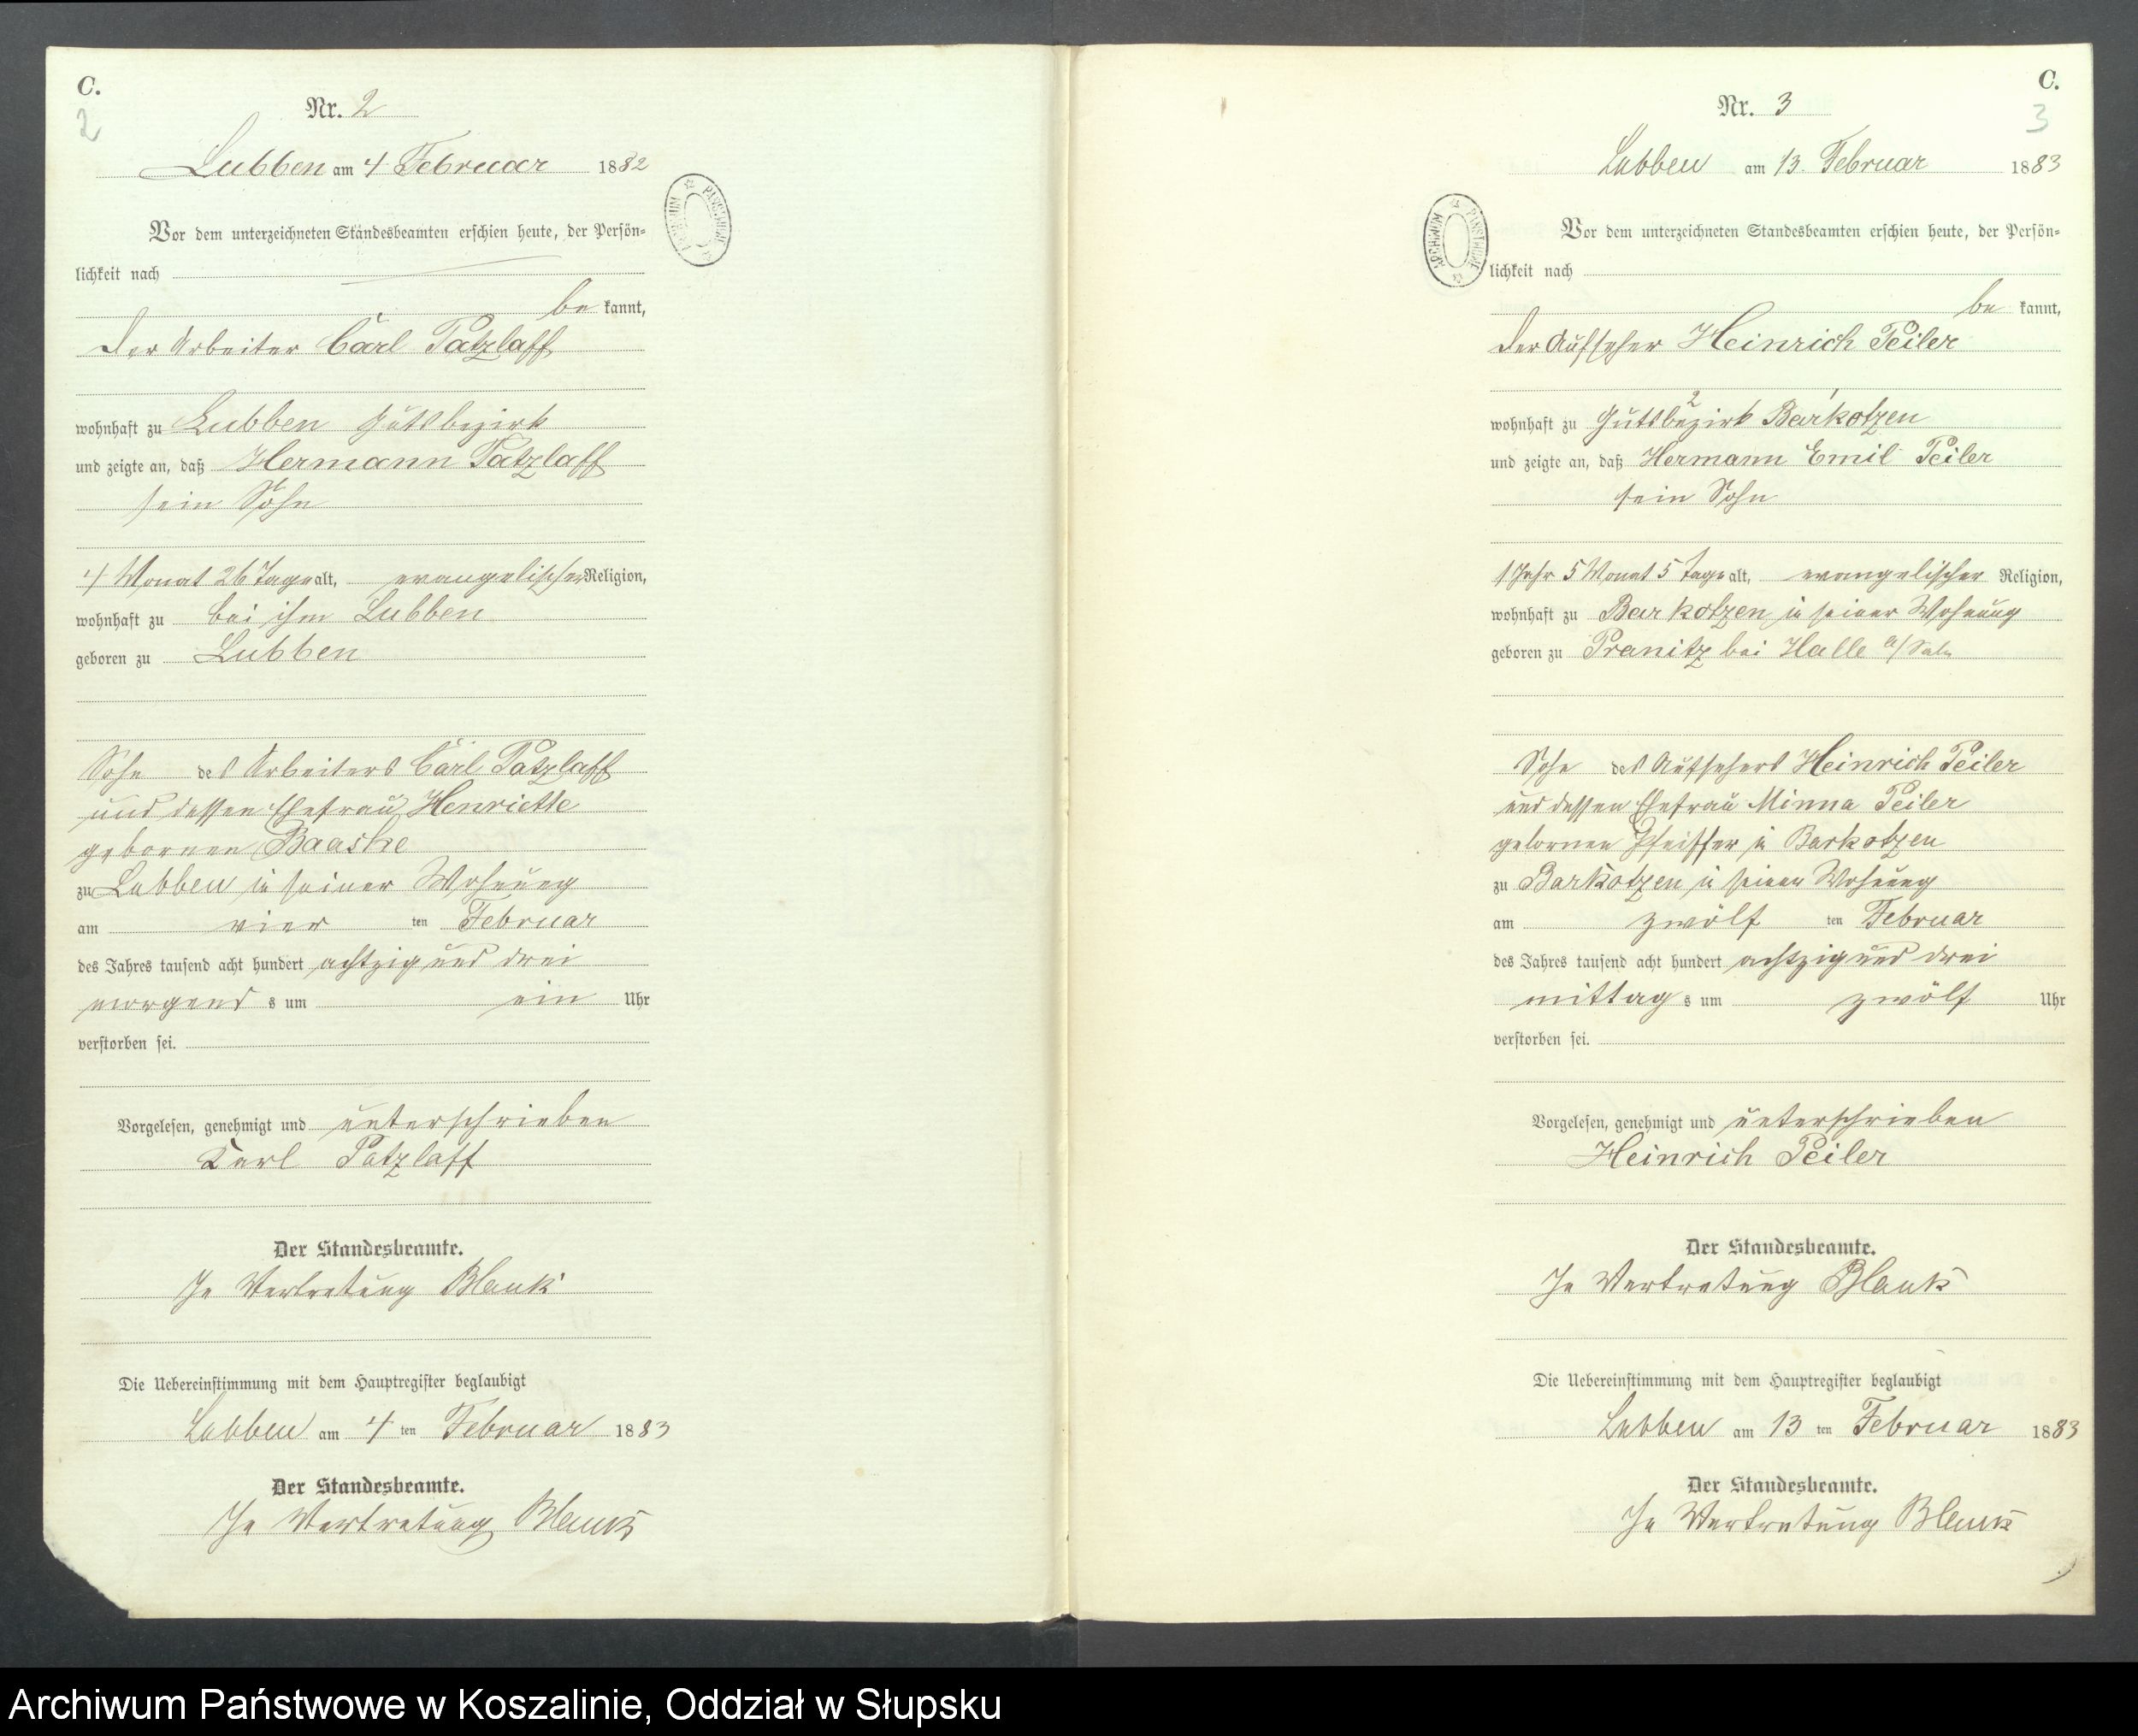 C.
2
Nr. 2
Lubben am 4 Februar 1882
Vor dem unterzeichneten Standesbeamten erschien heute, der Persön=
lichkeit nach
be kannt,
der Arbeiter Carl Patzlaff
wohnhaft zu Lubben Gutsbezirk
und zeigte an, daß Hermann Patzlaff
sein Sohn
4 Monat 26 Tage alt, evangelischer Religion,
wohnhaft zu bei ihm Lubben
geboren zu Lubben
Sohn des Arbeiters Carl Patzlaff
und dessen Ehefrau Henriette
gebornen Baaske
zu Lubben in seiner Wohnung
am vier ten Februar
des Jahres tausend acht hundert achtzig und drei
morgens s um ein Uhr
verstorben sei.
Vorgelesen, genehmigt und unterschrieben
Karl Patzlaff
Der Standesbeamte.
In Vertretung Blank
Die Uebereinstimmung mit dem Hauptregister beglaubigt
Lubben am 4 ten Februar 1883
Der Standesbeamte.
In Vertretung Blank
ARCHIWUM PAŃSTWOWE
C.
3
Nr. 3
Lubben am 13. Februar 1883
Vor dem unterzeichneten Standesbeamten erschien heute, der Persön=
lichkeit nach
be kannt,
der Aufseher Heinrich Peiler
2 1
wohnhaft zu Gutsbezirk Barkotzen
und zeigte an, daß Hermann Emil Peiler
sein Sohn
1 Jahr 5 Monat 5 Tage alt, evangelischer Religion,
wohnhaft zu Barkotzen in seiner Wohnung
geboren zu Pranitz bei Halle a/Sale
Sohn des Aufsehers Heinrich Peiler
und dessen Ehefrau Minna Peiler
gebornen Pfeiffer in Barkotzen
zu Barkotzen in seiner Wohnung
am zwölf ten Februar
des Jahres tausend acht hundert achtzig und drei
mittag s um zwölf Uhr
verstorben sei.
Vorgelesen, genehmigt und unterschrieben
Heinrich Peiler
Der Standesbeamte.
In Vertretung Blank
Die Uebereinstimmung mit dem Hauptregister beglaubigt
Lubben am 13 ten Februar 1883
Der Standesbeamte.
In Vertretung Blank
ARCHIWUM PAŃSTWOWE
Archiwum Państwowe w Koszalinie, Oddział w Słupsku